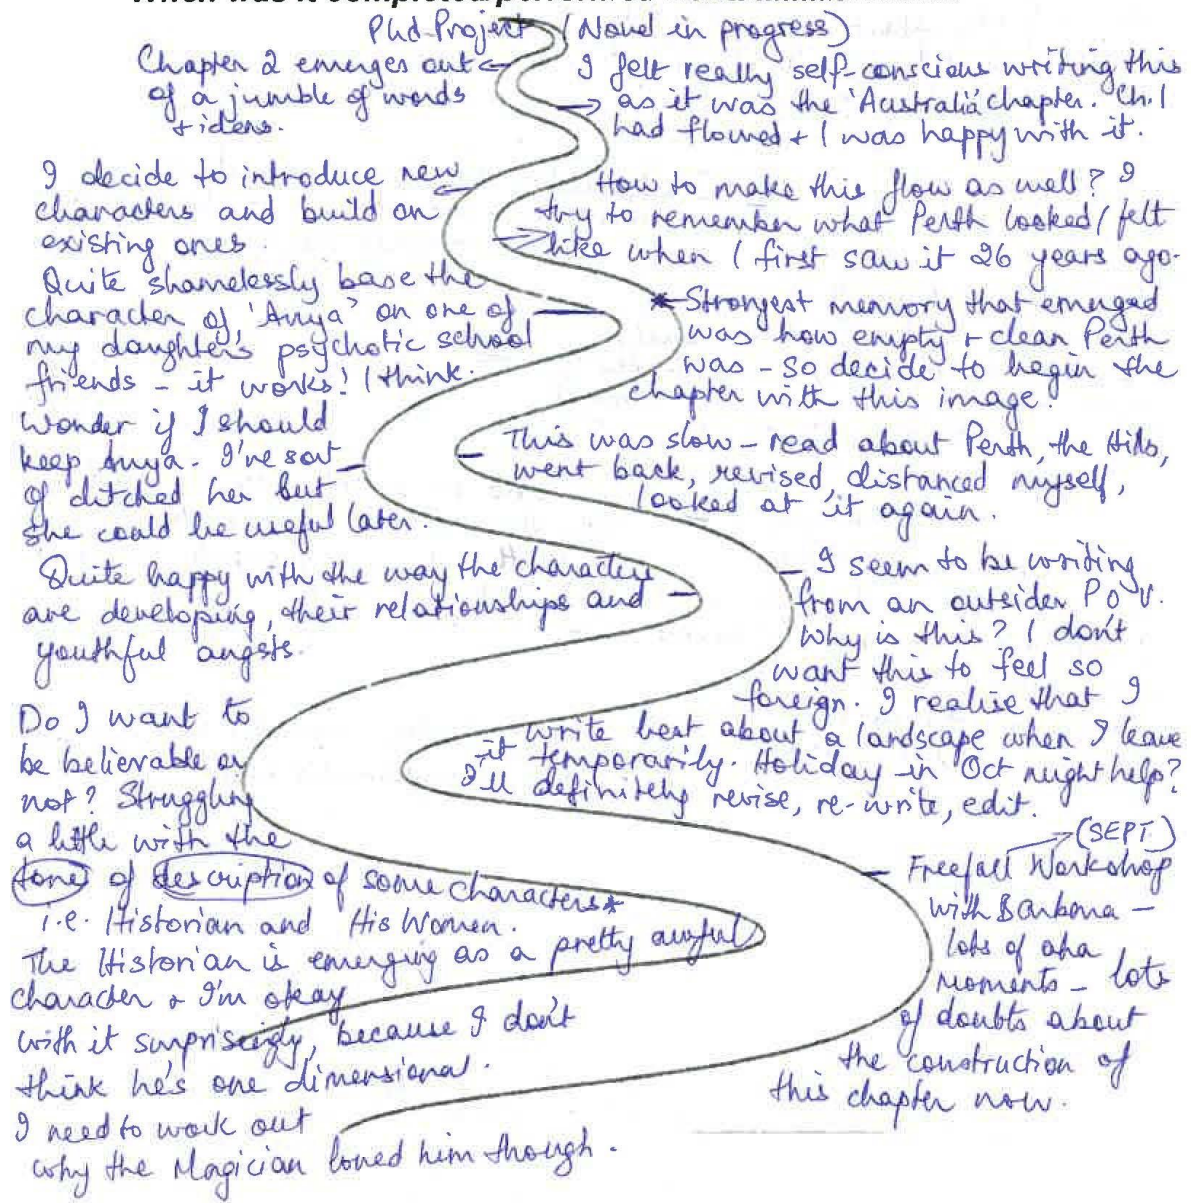 PhD Project (Novel in progress)
Chapter 2 emerges out
of a jumble of words
+ ideas.
I felt really self-conscious writing this
as it was the 'Australia' chapter. Ch. 1
had flowed + I was happy with it.
I decide to introduce new
characters and build on
existing ones.
How to make this flow as well? I
try to remember what Perth looked/felt
like when I first saw it 26 years ago.
Quite shamelessly base the
character of 'Anya' on one of
my daughter's psychotic school
friends - it works! I think.
* Strongest memory that emerged
was how empty + clean Perth
was - so decide to begin the
chapter with this image.
Wonder if I should
keep Anya. I've sort
of ditched her but
she could be useful later.
This was slow - read about Perth, the Hills,
went back, revised, distanced myself,
looked at it again.
Quite happy with the way the characters
are developing, their relationships and
youthful angsts.
I seem to be writing
from an outsider P o V.
Why is this? I don't
want this to feel so
foreign. I realise that I
write best about a landscape when I leave
it temporarily. Holiday in Oct might help?
I'll definitely revise, re-write, edit.
Do I want to
be believable or
not? Struggling
a little with the
tone of description of some characters*
i.e. Historian and His Women.
The Historian is emerging as a pretty awful
character & I'm okay
with it surprisingly, because I don't
think he's one dimensional.
I need to work out
why the Magician loved him though.
(SEPT)
Freefall Workshop
with Barbara -
lots of aha
moments - lots
of doubts about
the construction of
this chapter now.